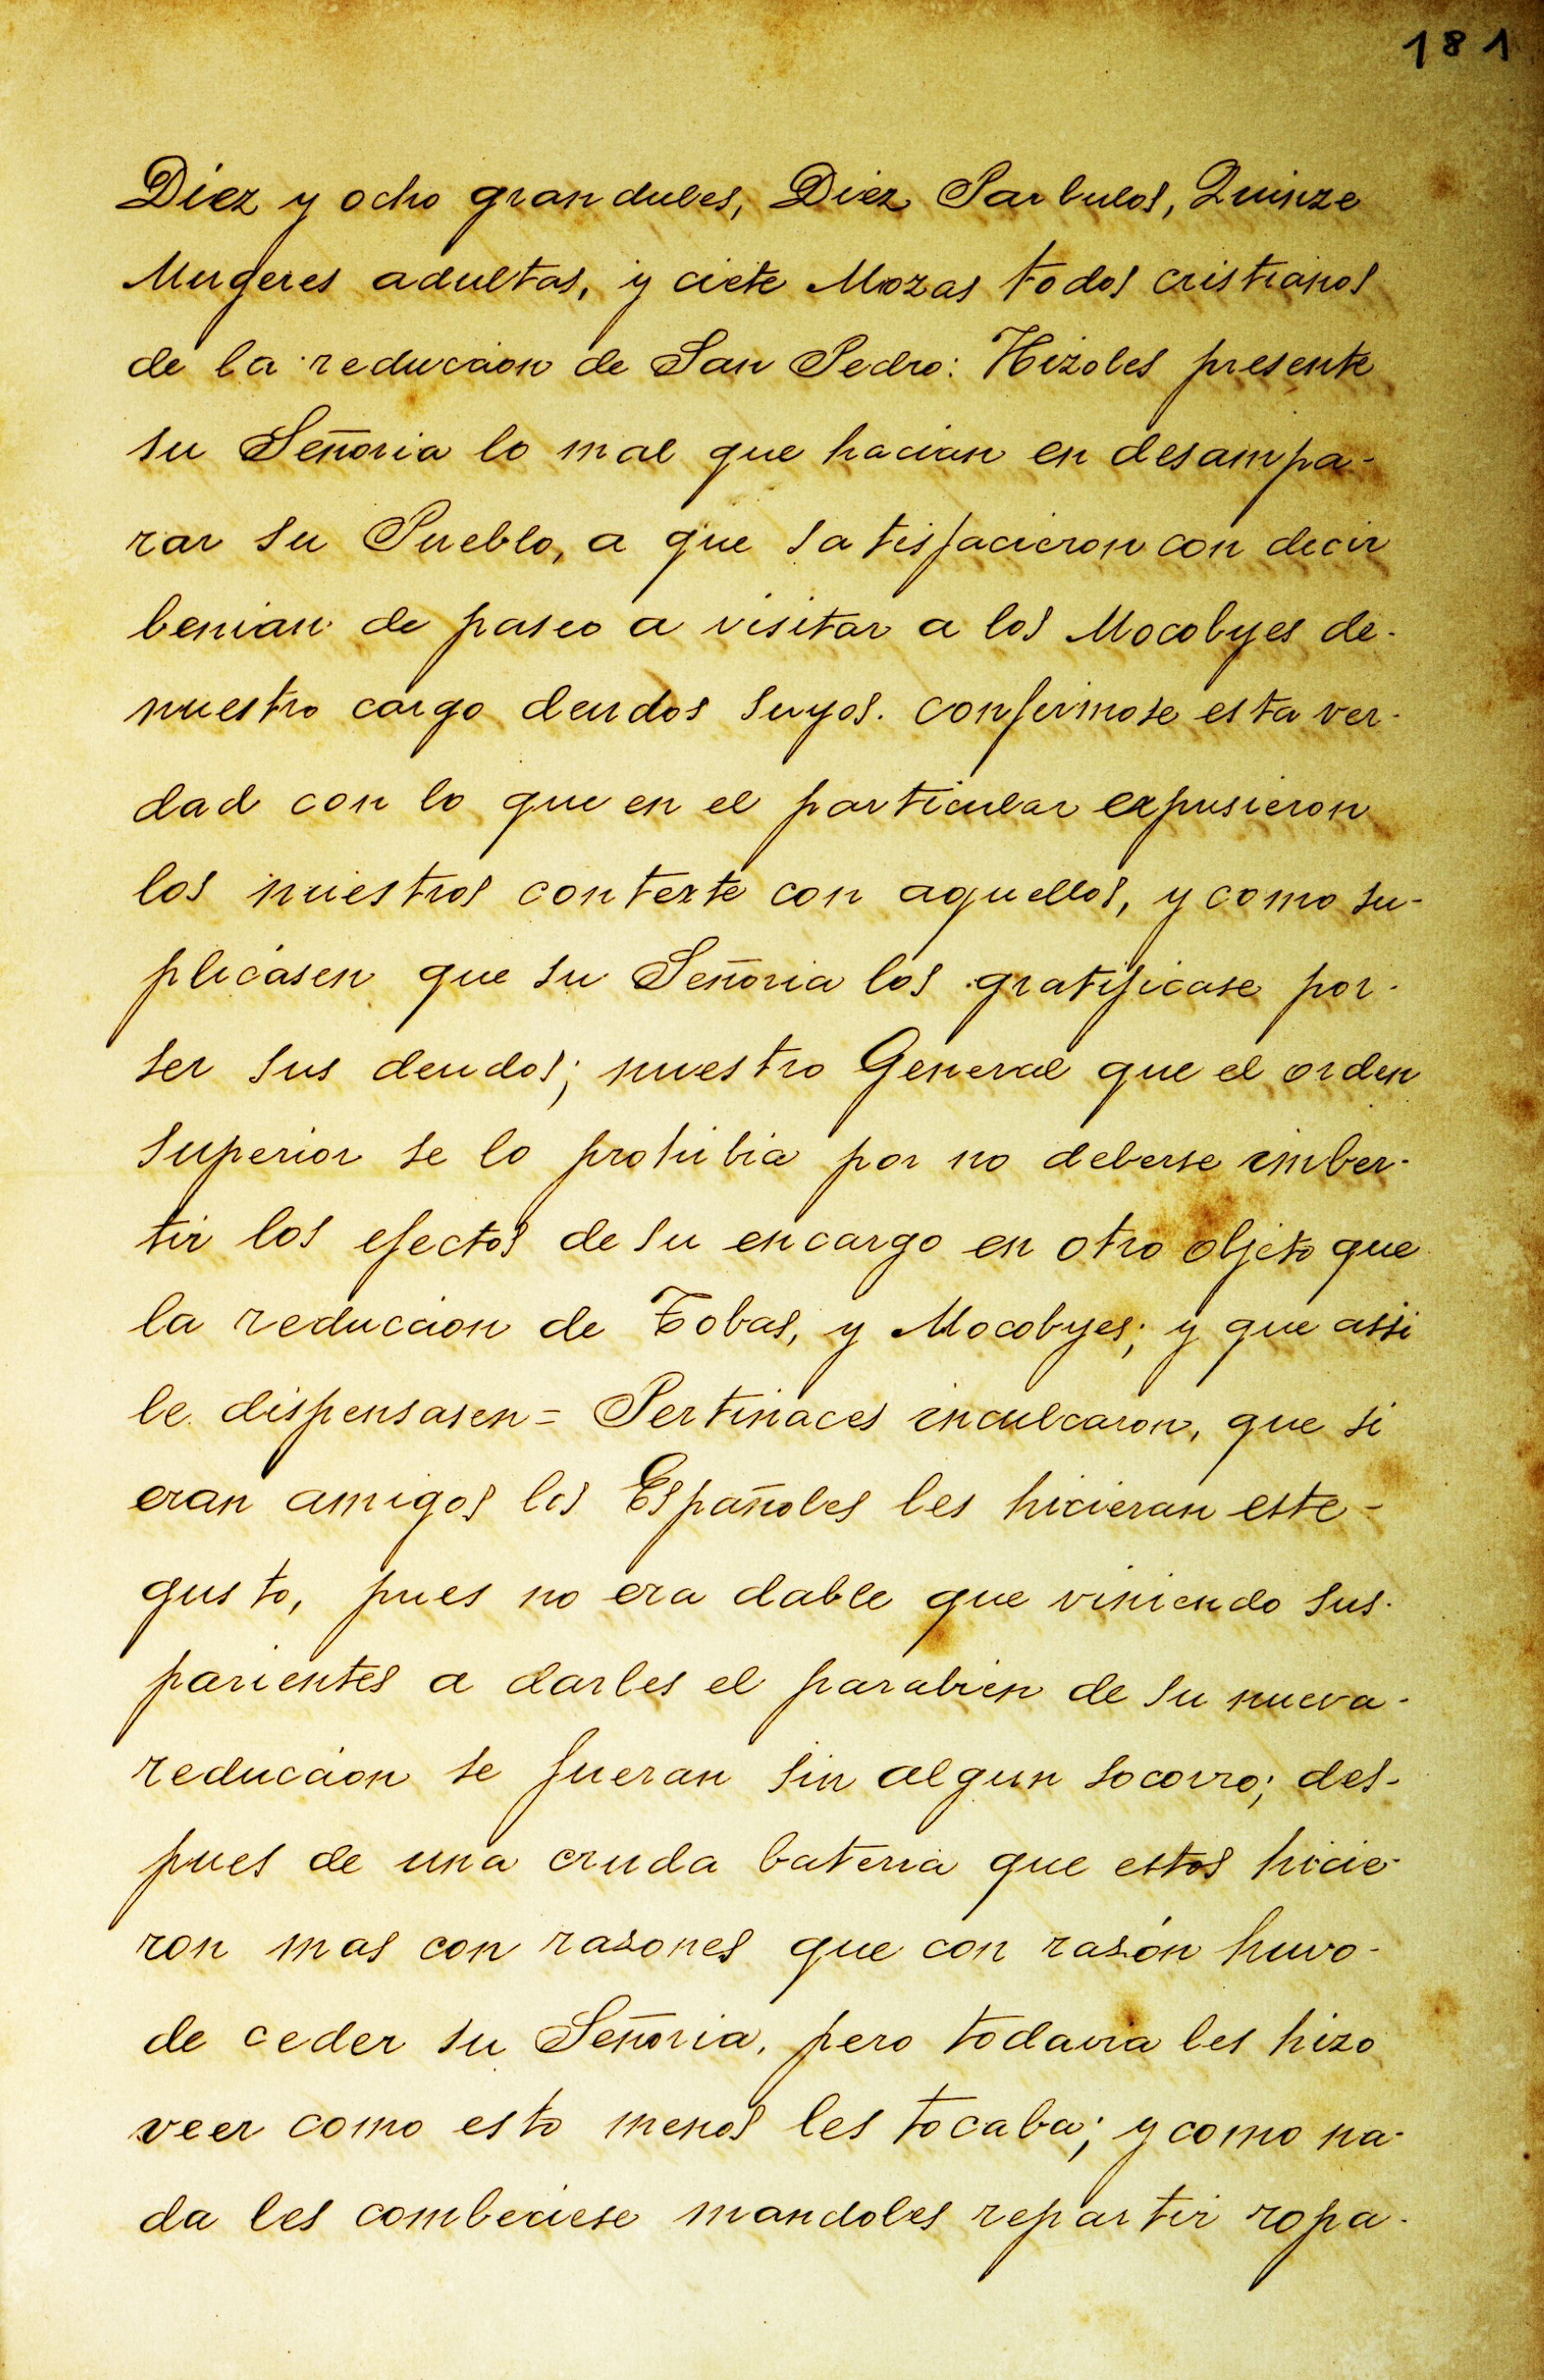 181
Diez y ocho grandules, Diez Parbulos, Quinze
Mugeres adultas, y ciete Mozas todos cristianos
de la reducion de San Pedro: Hizoles presente
su Señoria lo mal que hacian en desampa-
rar su Pueblo, a que satisfacieron con decir
benian de paseo a visitar a los Mocobyes de-
nuestro cargo deudos suyos. confirmose esta ver-
dad con lo que en el particular expusieron
los nuestros conteste con aquellos, y como su-
plicasen que su Señoria los gratificase por-
ser sus deudos; nuestro General que el orden
superior se lo prohibia por no deberse imber-
tir los efectos de su encargo en otro objeto que
la reducion de Tobas, y Mocobyes; y que assi
le dispensasen = Pertinaces inculcaron, que si
eran amigos los Españoles les hicieran este-
gusto, pues no era dable que viniendo sus-
parientes a darles el parabien de su nueva-
reducion se fueran sin algun socorro; des-
pues de una cruda bateria que estos hicie-
ron mas con rasones que con rasón huvo-
de ceder su Señoria, pero todavia les hizo
veer como esto menos les tocaba; y como na-
da les combeciese mandoles repartir ropa-